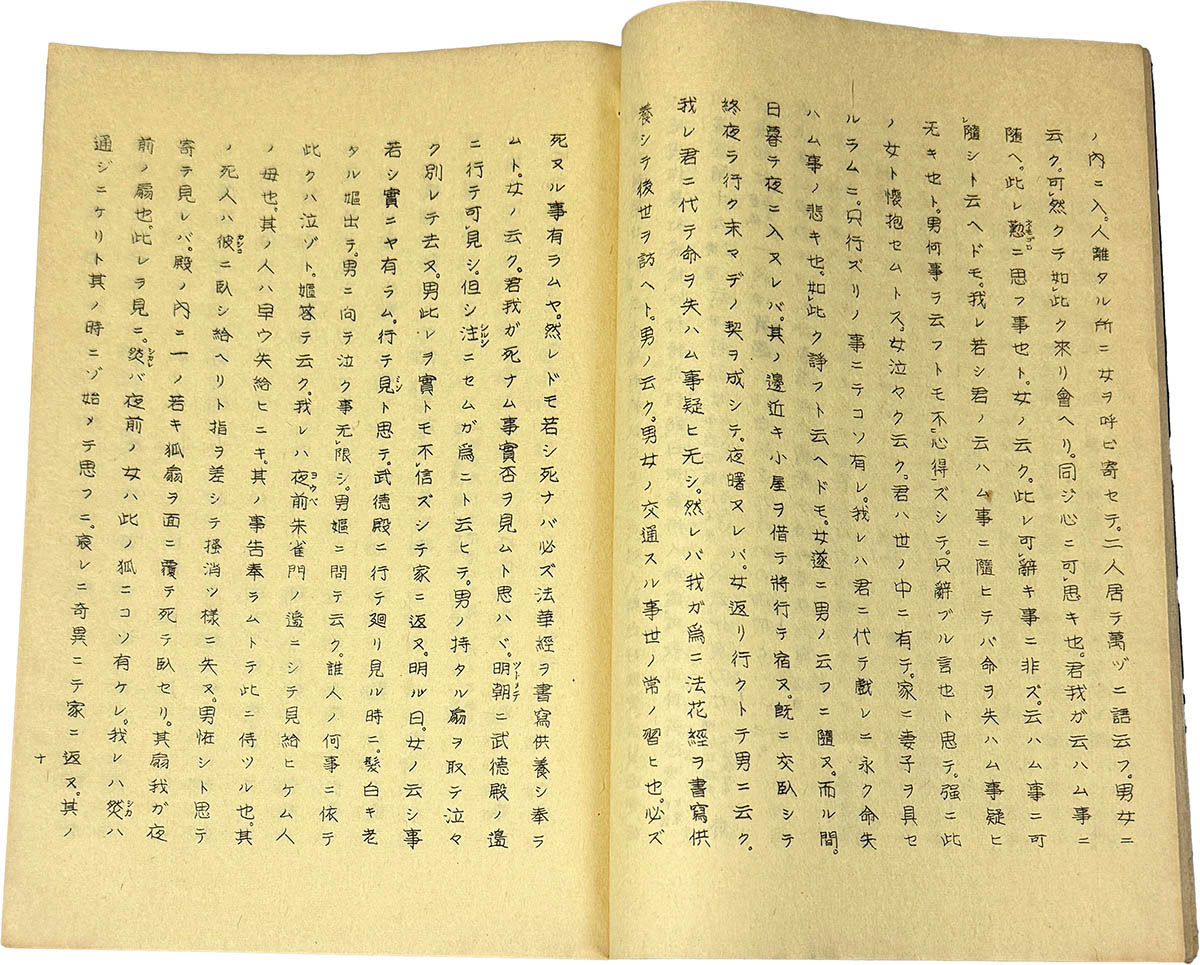 ノ內ニ入。人離タル所ニ女ヲ呼ビ寄セテ。二人居テ萬ヅニ語云フ。男女ニ
云ク。可レ然クテ如レ此ク來リ會ヘリ。同ジ心ニ可レ思キ也。君我ガ云ハム事ニ
隨ヘ。此レ懃ネモゴロニ思フ事也ト。女ノ云ク。此レ可レ辭キ事ニ非ズ。云ハム事ニ可
レ隨シト云ヘドモ。我レ若シ君ノ云ハム事ニ隨ヒテバ命ヲ失ハム事疑ヒ
无キ也ト。男何事ヲ云フトモ不二心得一ズシテ。只辭ブル言也ト思テ。强ニ此
ノ女ト懷抱セムトス。女泣々ク云ク。君ハ世ノ中ニ有テ。家ニ妻子ヲ具セ
ルラムニ。只行ズリノ事ニテコソ有レ。我レハ君ニ代テ戲レニ永ク命失
ハム事ノ悲キ也。如レ此ク諍フト云ヘドモ。女遂ニ男ノ云フニ隨ヌ。而ル間。
日暮テ夜ニ入ヌレバ。其ノ邊近キ小屋ヲ借テ將行テ宿ヌ。旣ニ交臥シテ
終夜ラ行ク末マデノ契ヲ成シテ。夜曙ヌレバ。女返リ行クトテ男ニ云ク。
我レ君ニ代テ命ヲ失ハム事疑ヒ无シ。然レバ我ガ爲ニ法花經ヲ書寫供
養シテ後世ヲ訪ヘト。男ノ云ク。男女ノ交通スル事世ノ常ノ習ヒ也。必ズ
死ヌル事有ラムヤ。然レドモ若シ死ナバ必ズ法華經ヲ書寫供養シ奉ラ
ムト。女ノ云ク。君我ガ死ナム事實否ヲ見ムト思ハヾ。明朝ツトメテニ武德殿ノ邊
ニ行テ可レ見シ。但シ注シルシニセムガ爲ニト云ヒテ。男ノ持タル扇ヲ取テ泣々
ク別レテ去ヌ。男此レヲ實トモ不レ信ズシテ家ニ返ヌ。明ル日。女ノ云シ事
若シ實ニヤ有ラム。行テ見ミント思テ。武德殿ニ行テ廻リ見ル時ニ。髮白キ老
タル嫗出テ。男ニ向テ泣ク事无レ限シ。男嫗ニ問テ云ク。誰人ノ何事ニ依テ
此クハ泣ゾト。嫗答テ云ク。我レハ夜前ヨウベ朱雀門ノ邊ニシテ見給ヒケム人
ノ母也。其ノ人ハ早ウ失給ヒニキ。其ノ事告奉ラムトテ此ニ侍ツル也。其
ノ死人ハ彼カシコニ臥シ給ヘリト指ヲ差シテ搔消ツ樣ニ失ヌ。男恠シト思テ
寄テ見レバ。殿ノ內ニ一ノ若キ狐扇ヲ面ニ覆テ死テ臥セリ。其扇我ガ夜
前ノ扇也。此レヲ見ニ。然シカレバ夜前ノ女ハ此ノ狐ニコソ有ケレ。我レハ然シカハ
通ジニケリト其ノ時ニゾ始メテ思フニ。哀レニ奇異ニテ家ニ返ヌ。其ノ
十